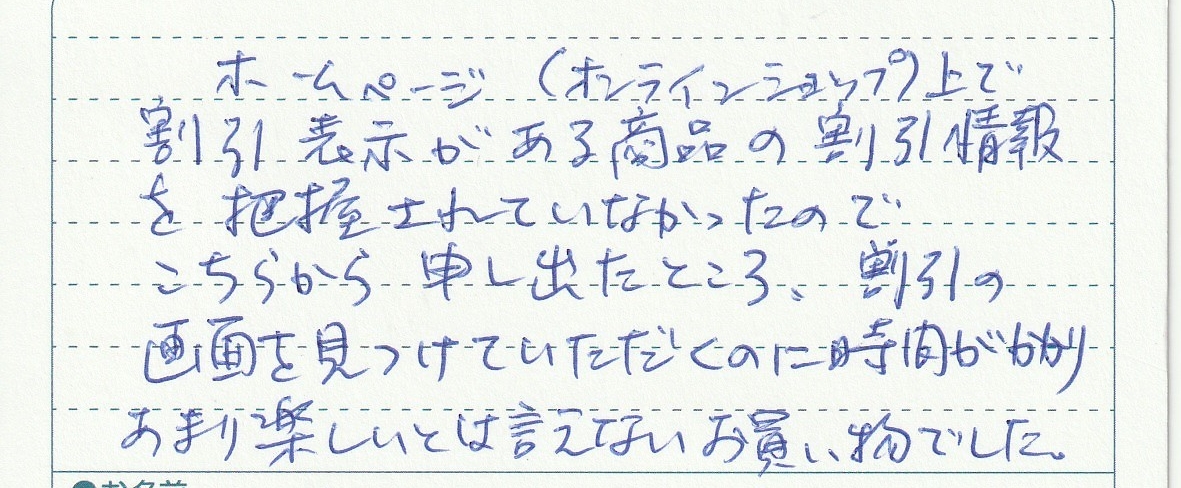 ホームページ（オンラインショップ）上で
割引表示がある商品の割引情報
を把握されていなかったので
こちらから申し出たところ、割引の
画面を見つけていただくのに時間がかかり
あまり楽しいとは言えないお買い物でした。
●お名前